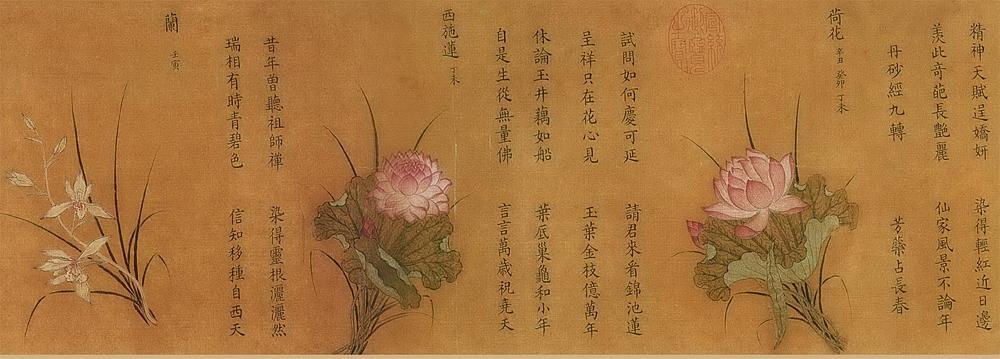 精神天賦逞嬌妍 染得輕紅近日邊
羨此奇葩長艷麗 仙家風景不論年
丹砂經九轉 芳蘂占長春
荷花 辛丑 癸卯 丁未
試問如何慶可延 請君來看錦池蓮
呈祥只在花心見 玉葉金枝億萬年
休論玉井藕如船 葉底巢龜和小年
自是生從無量佛 言言萬歲祝堯天
西施蓮 丁未
昔年曾聽祖師禪 染得靈根灑灑然
瑞相有時青碧色 信知移種自西天
蘭 壬寅